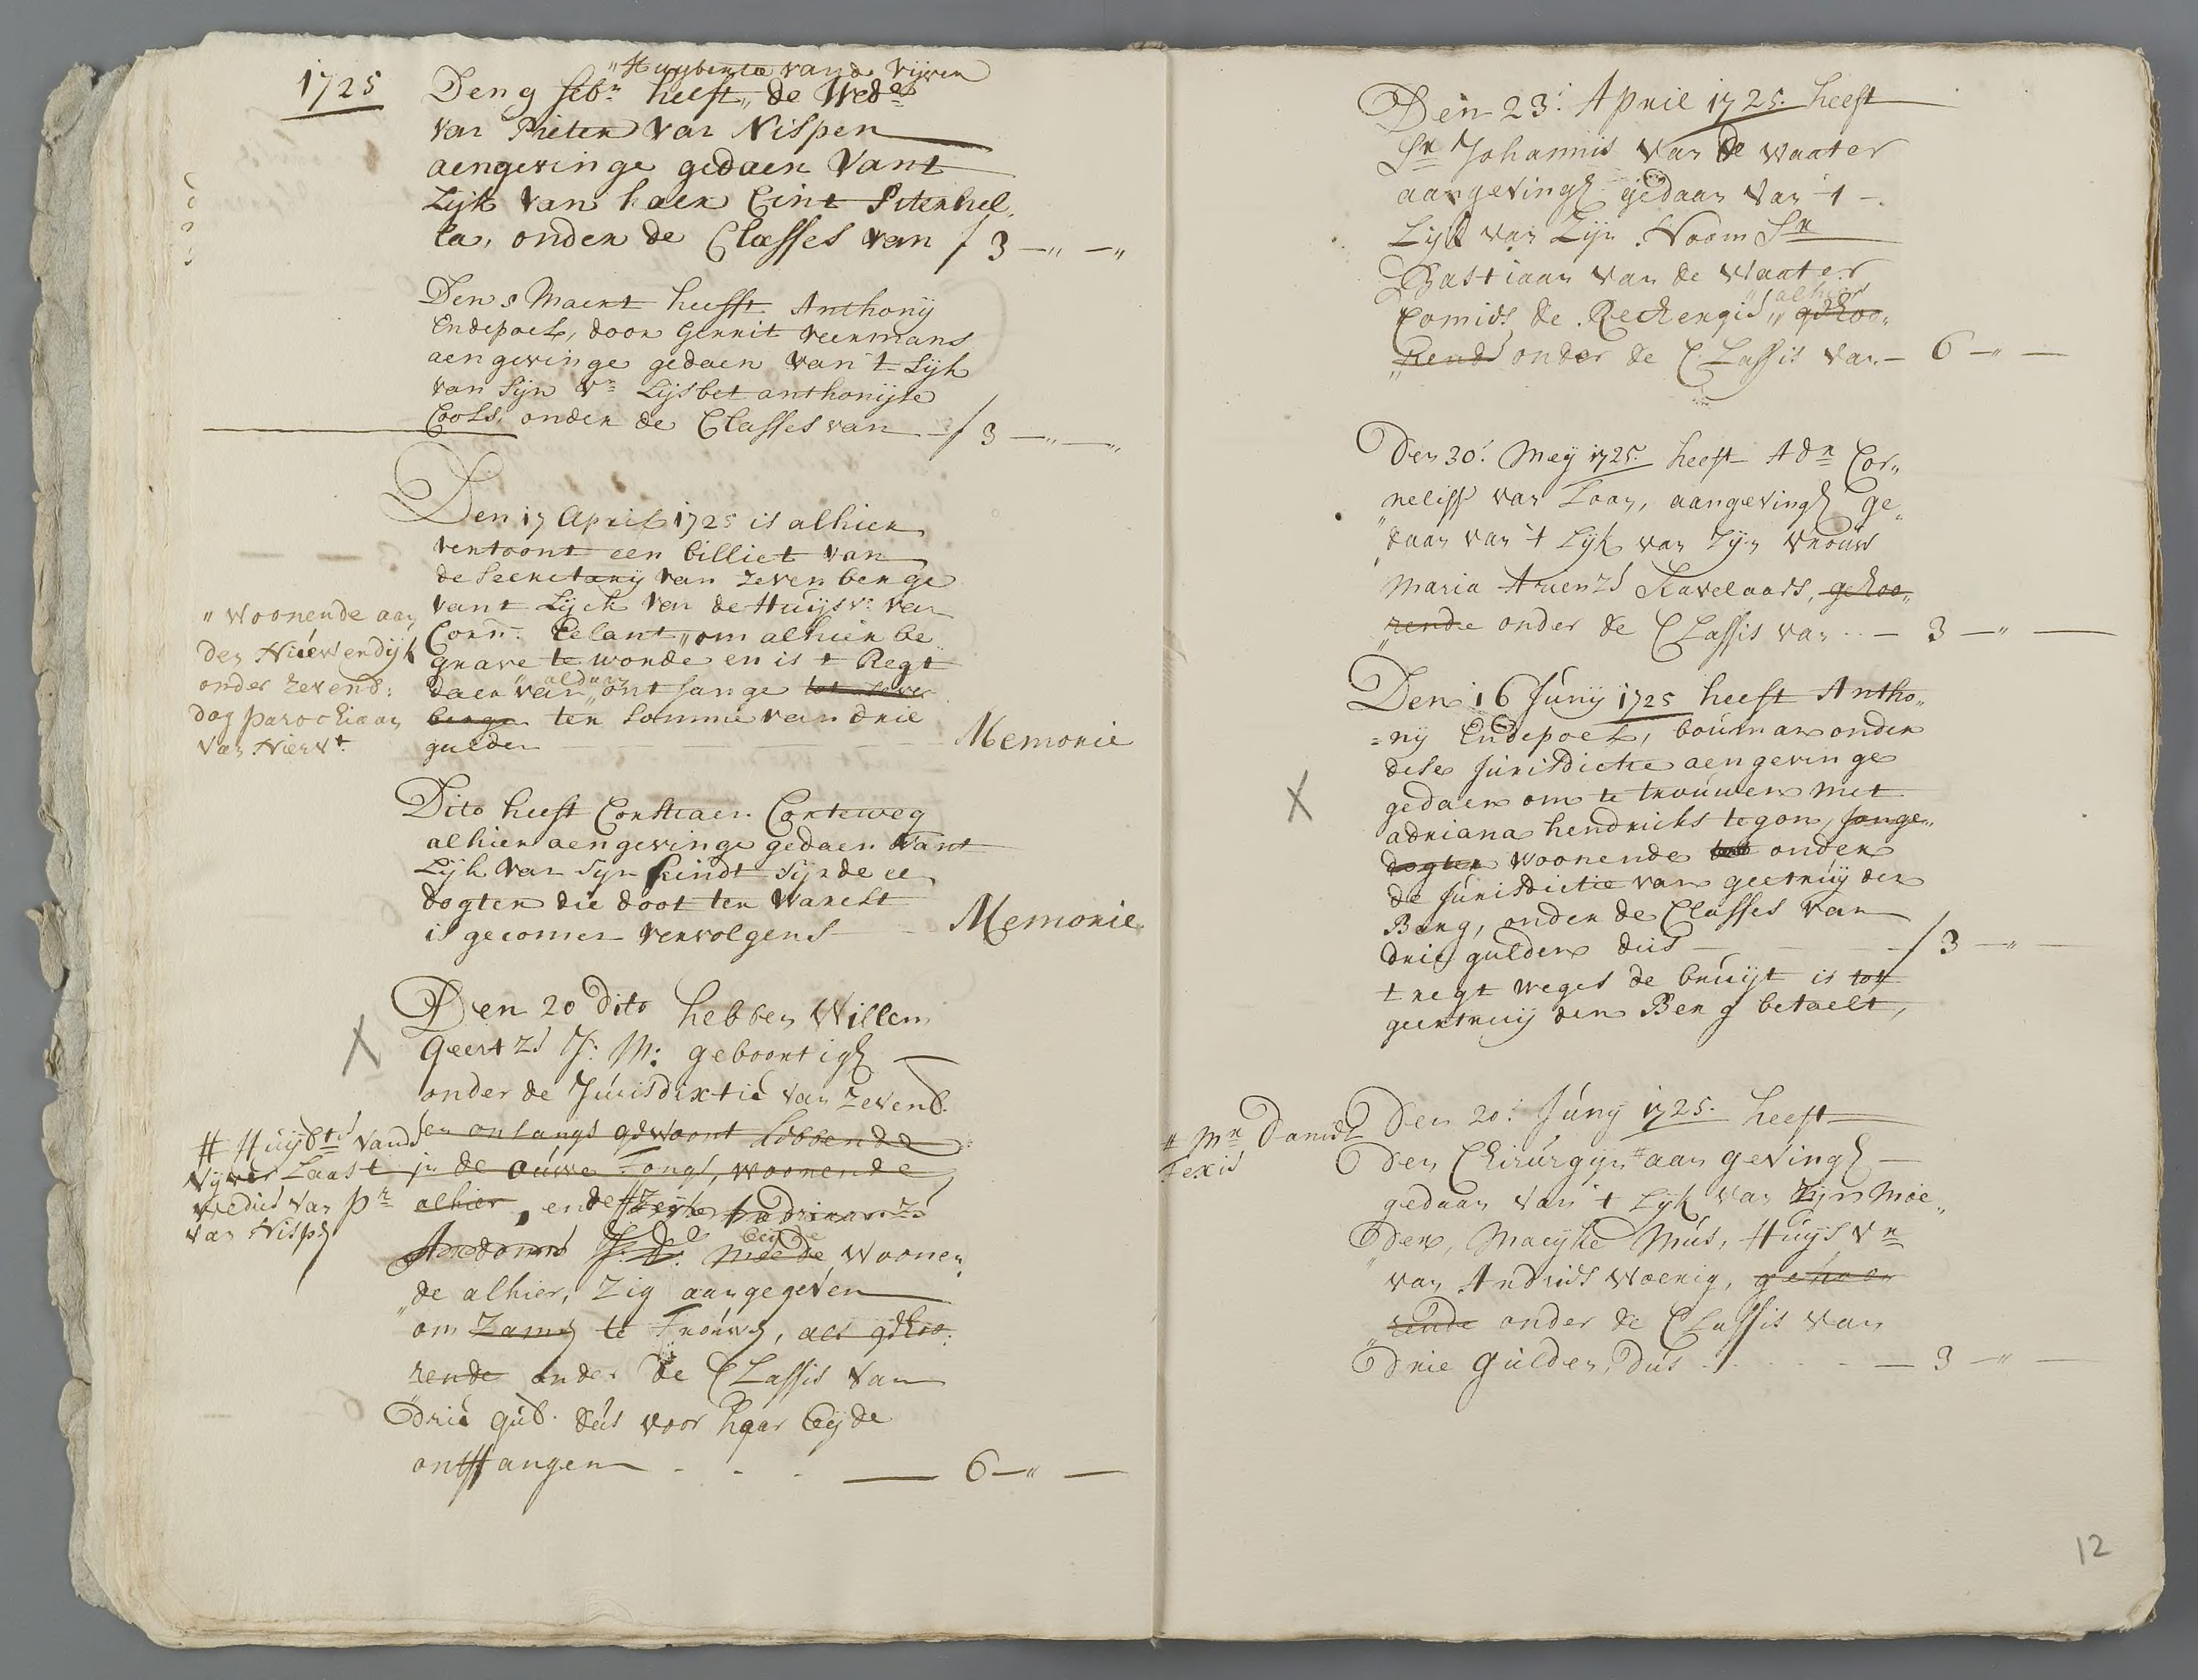 1725
"Huybertie vande Vijver
Den 9 febr. heeft,, de Wede.
van Pieter Van Nispen
aengevinge gedaen Vant
Lijk van haer Cint Piternel,
la, onder de Classes van f 3 —„ —„
Den 8 Maert heefft Anthonij
Endepoel, door Gerrit veermans
aengevinge gedaen van 't Lijk
van Sijn Vr. Lijsbet anthonijse
Cools, onder de Classes van — f 3 —„—„
Den 17 April 1725 is alhier
vertoont een billiet van
de Secretarij van Zevenberge
vant Lijck van de Huijsvr. van
Corn: Pelant,, om alhier be
grave te worde en is t Regt
daer van ,,aldaer ontfange tot Zeven
berge ter Somme van drie
gulden Memorie
" Woonende aan
den Nieuwendijk
onder Zevenb:
dog parochiaan
van Nierv.t
Dito heeft Corstiaen Corteweg
alhier aengevinge gedaen Vant
Lijk van Sijn kindt Sijnde ee
dogter die doot ter Warelt
is gecomen vervolgens Memorie
X
Den 20 Dito hebben Willem
Geertzs J: M: geboortigh
onder de Jurisdixtie van Zevenb.
en onlangs gewoont hebbende
in de Ouwe Tonge, woonende
alhier, ende #
J. D. mede beijde woonen,
"de alhier, Zig aangegeven
om Zamen te Trouwen, als gehoo:
rende onder de Classis van
drie gul. dus voor haar beijde
ontffangen - - - — 6 —„ —
# Huijbtie vande
Vijver Laast
wedue van Pr
van Nispen
Den 23: April 1725. heeft
Sr Johannis van de Waater
aangeving gedaan van 't
Lijk van Zijn Noom Sr
Bastiaan van de Waater
Comies de Reekengie,, alhier gehoo„
"rende onder de Classis van — 6 —„ —
Den 30: Meij 1725. heeft Adn Cor„
neliss van Loon, aangeving ge„
"daan van 't Lijk van Zijn Vrouw
Maria Aruenzs Kavelaars, gehoo„
"rende onder de Classis van - - — 3 —„ —
X
Den 16 Junij 1725 heeft Antho„
=nij Endepoel, bouman onder
dese Jurisdictie aengevinge
gedaen om te trouwen met
adriana hendricks tegon, Jonge„
dogter woonende tot onder
de Jurisdictie van geetruij den
Berg, onder de Classes van
drie gulden dus — f 3 —„ —
t regt weges de bruijt is tot
geertruij den Berg betaelt,
# Mr Daniel
Texis
Den 20: Junij 1725. heeft
den Chirurgijn # aangeving
gedaan van 't Lijk van Zijn Moe„
der, Maeyke Mus, Huijsvr
"van Andries Woenig, gehoo
"rende onder de Classis van
drie gulden, dus - - - — 3 —„ —
12